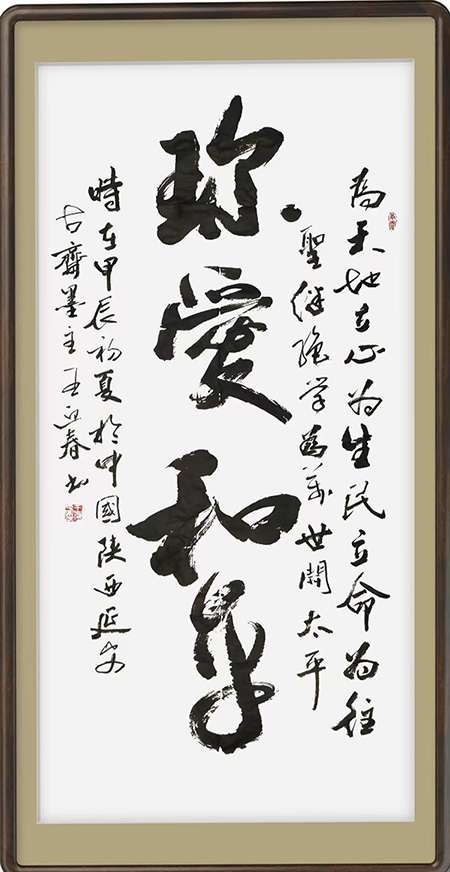 為天地立心为生民立命为往
聖継絶学為萬世開太平
珍愛和平
時在甲辰初夏於中國陕西延安
古齋墨主王迎春书